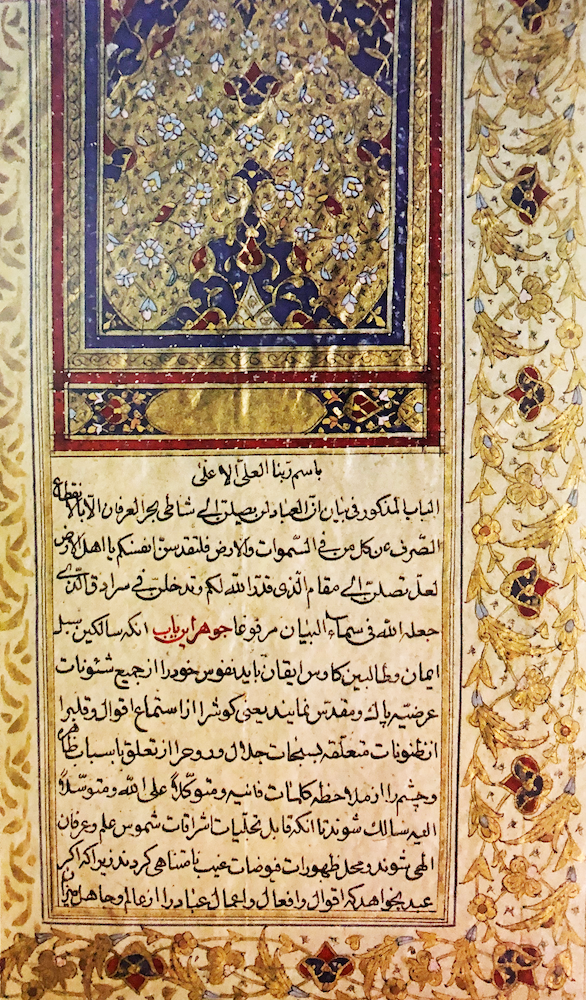 باسم ربنا العلی الاعلی
الباب المذکور فی بیان ان العباد لن یصلن الی شاطی بحر العرفان الا بالانقطاع
الصرف عن کل من فی السموات و الارض فلتقدسن انفسکم یا اهل الارض
لعل تصلن الی مقام الذی قدر الله لکم و تدخلن فی سرادق الذی
جعله الله فی سماء البیان مرفوعا جوهر این باب آنکه سالکین سبیل
ایمان و طالبین کاوس ایقان باید نفوس خود را از جمیع شئونات
عرضیه پاک و مقدس نمایند یعنی گوش را از استماع اقوال و قلب را
از ظنونات متعلقه بسبحات جلال و روح را از تعلق باسباب ظاهره
و چشم را از ملاحظه کلمات فانیه و متوکلاً علی الله و متوسلاً
الیه سالک شوند تا آنکه قابل تجلیات اشراقات شموس علم و عرفان
الهی شوند و محل ظهورات فیوضات غیب نامتناهی گردند زیرا که اگر
عبد بخواهد که اقوال و افعال و اعمال عباد را از عالم و جاهل میزان